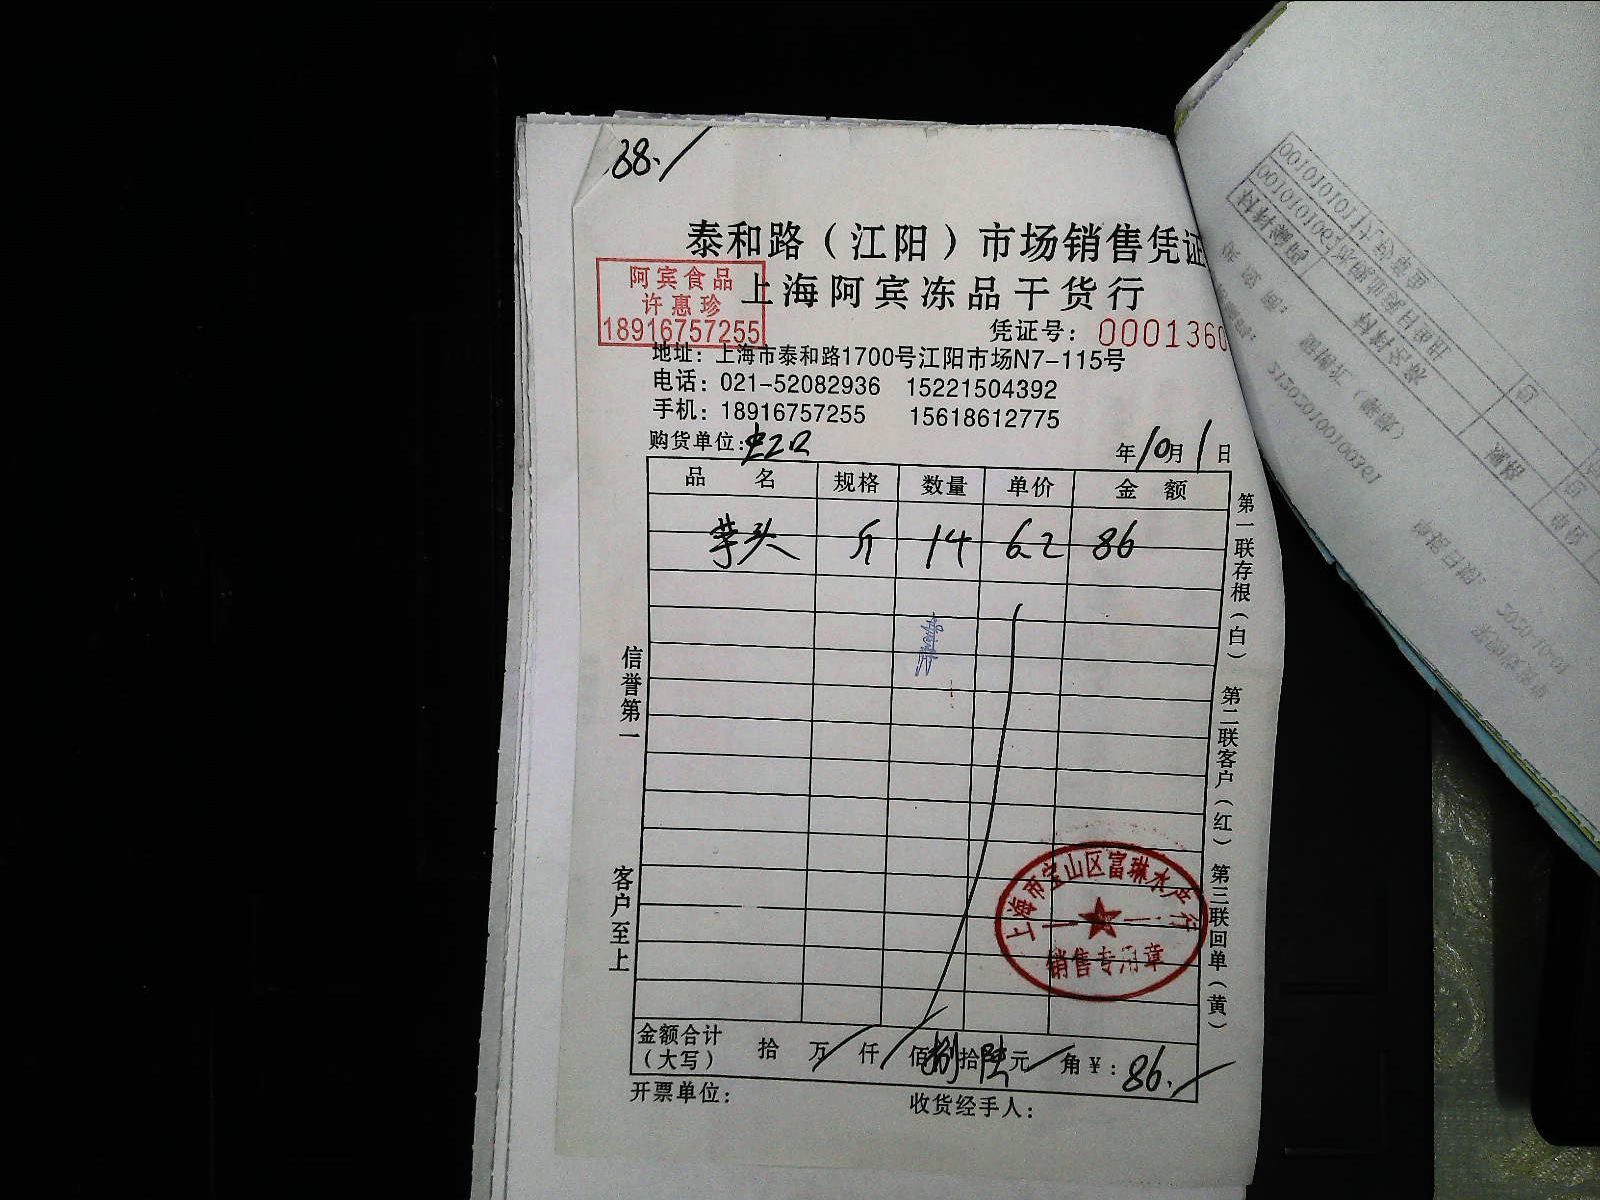 38.
泰和路（江阳）市场销售凭证
阿宾食品
许惠珍
18916757255
上海阿宾冻品干货行
凭证号：0001360
地址：上海市泰和路1700号江阳市场N7-115号
电话：021-52082936 15221504392
手机：18916757255 15618612775
购货单位： 年10月1日
品名 规格 数量 单价 金额
芋头 斤 14 6.2 86
第一联存根（白） 第二联客户（红） 第三联回单（黄）
信誉第一
客户至上
上海市宝山区富琳水产行
销售专用章
金额合计（大写） 拾 万 仟 佰捌拾陆元 角￥：86.
开票单位： 收货经手人：